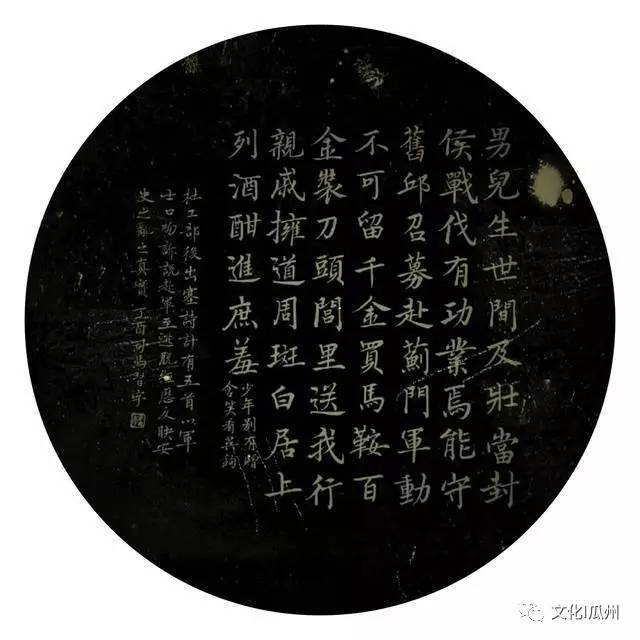 男兒生世間及壯當封
侯戰伐有功業焉能守
舊邱召募赴薊門軍動
不可留千金買馬鞍百
金裝刀頭閭里送我行
親戚擁道周斑白居上
列酒酣進庶羞少年別有贈
含笑看吳鉤
杜工部後出塞詩計有五首以軍
士口吻訴說赴軍至逃脫
史之亂之真實丁酉
文化I瓜州